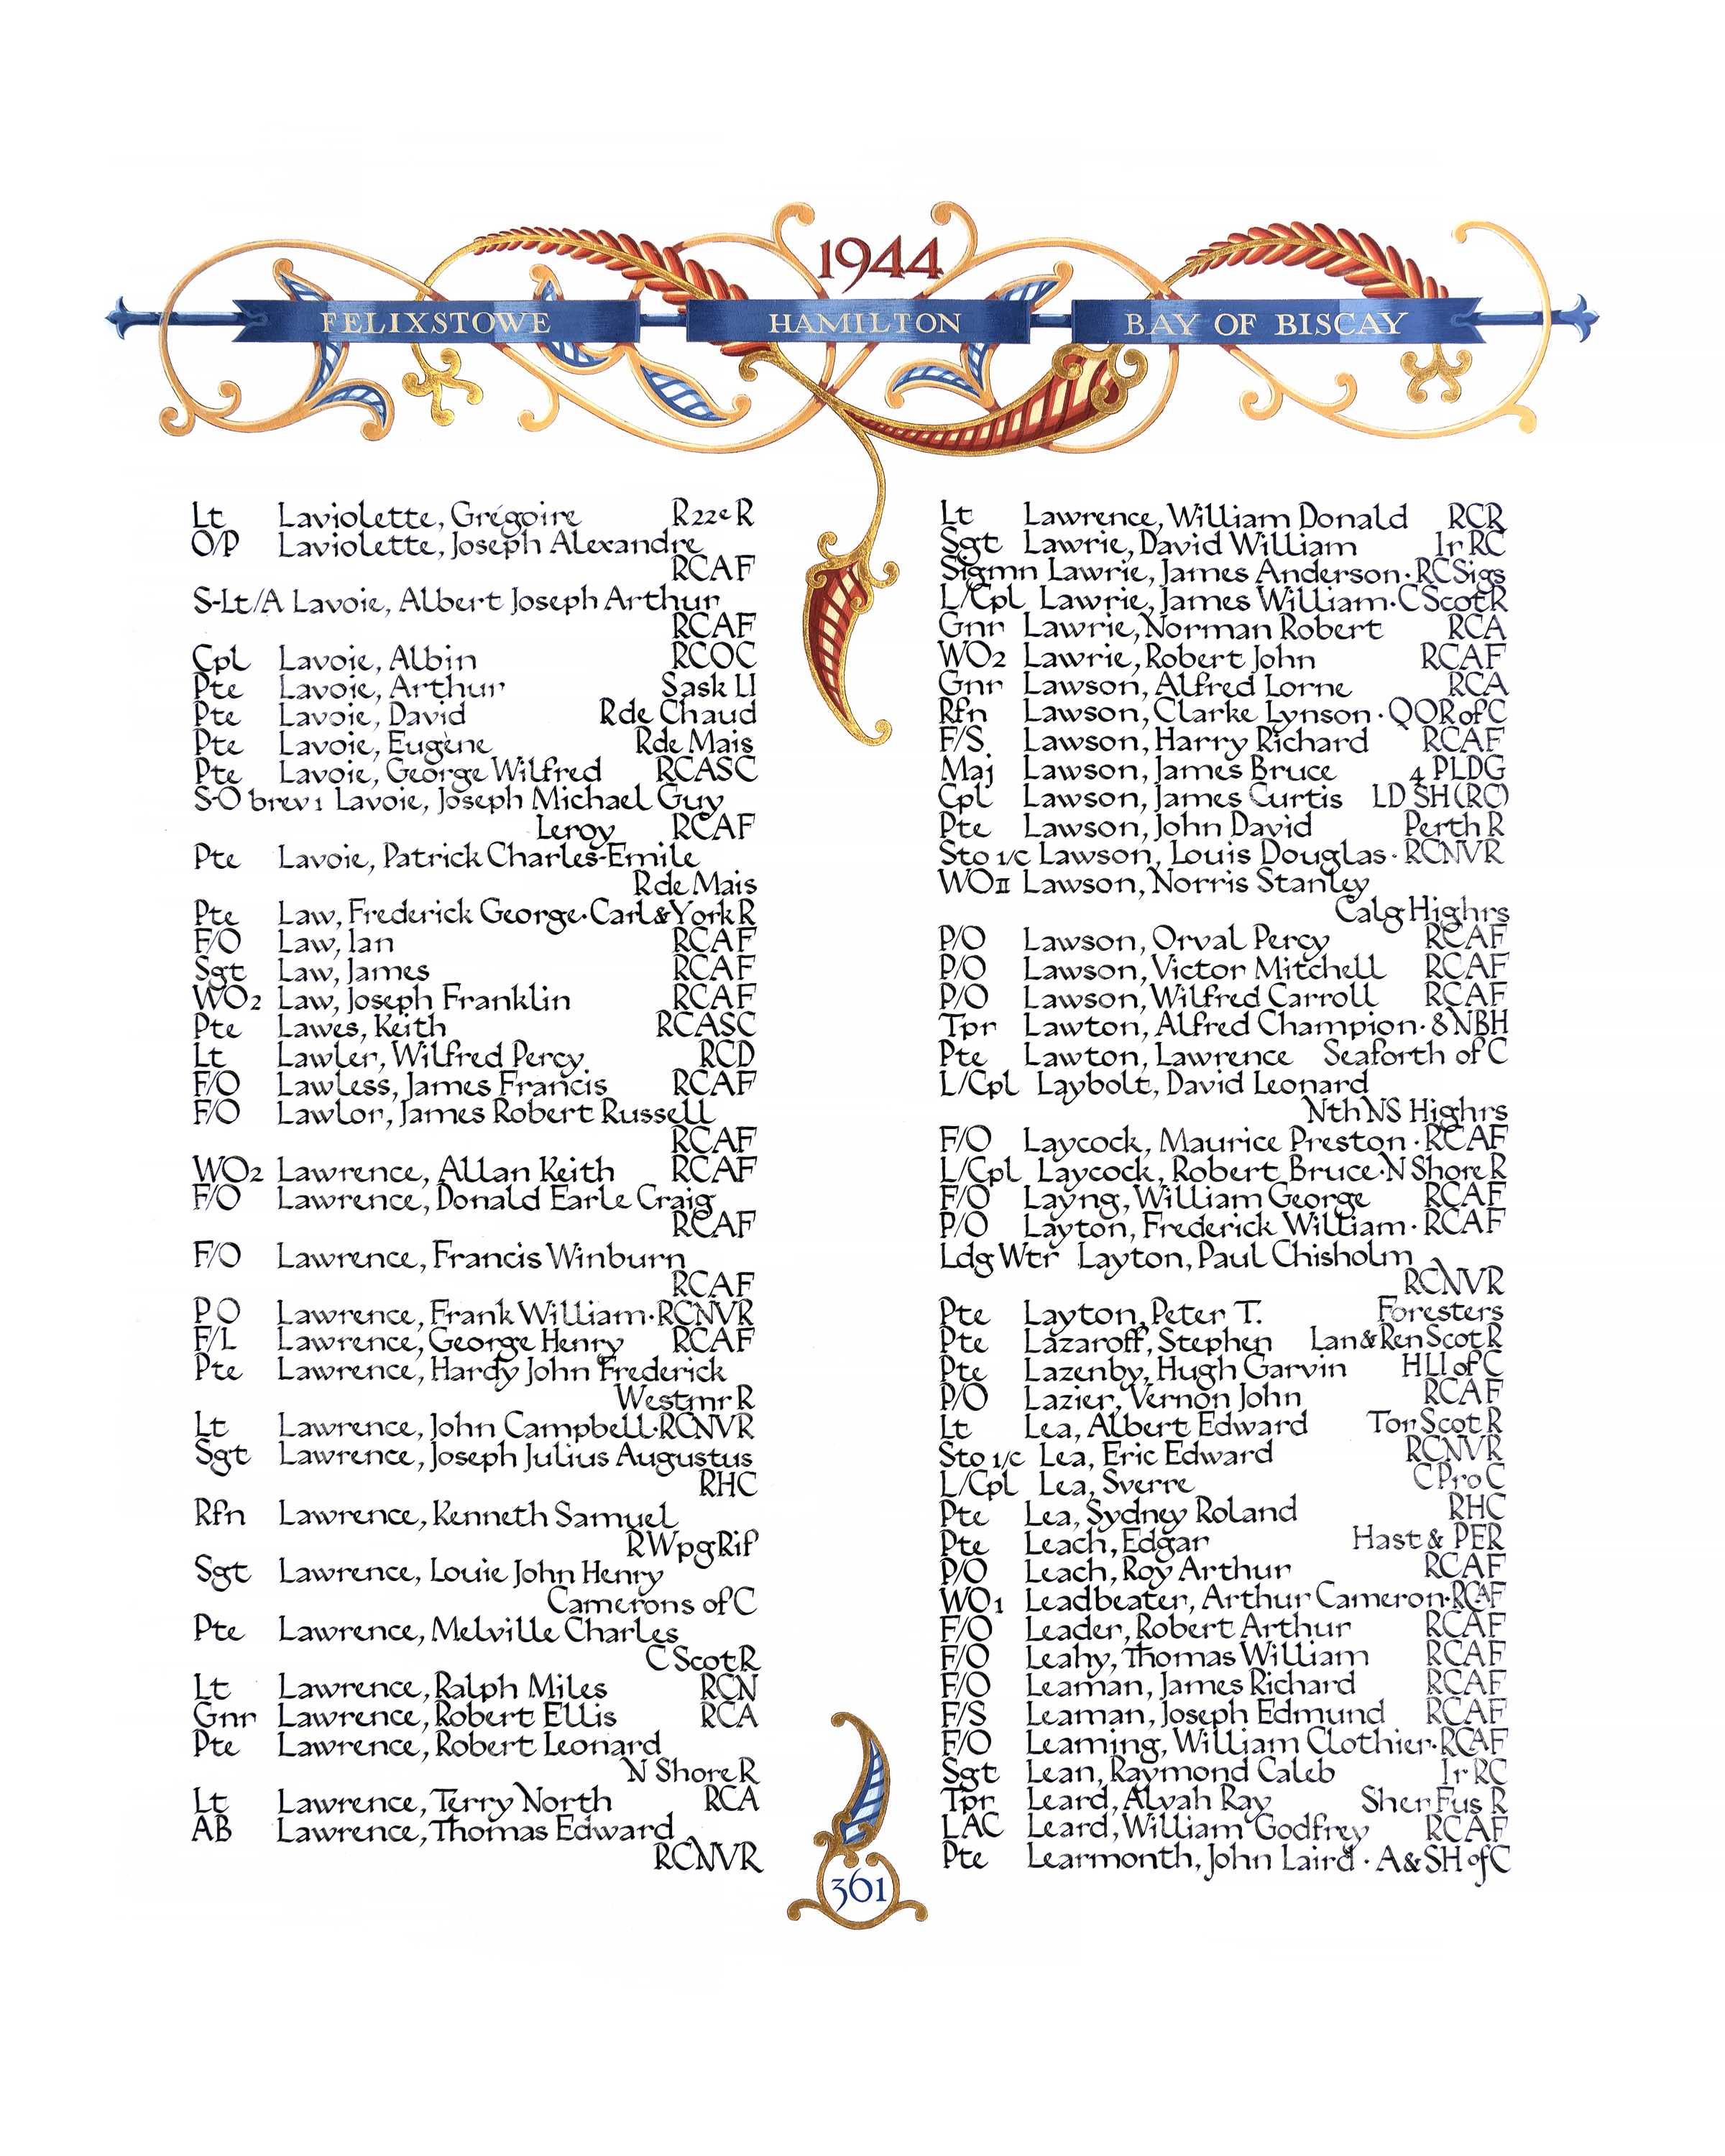 1944
FELIXSTOWE HAMILTON BAY OF BISCAY
Lt Laviolette, Grégoire R22eR
O/P Laviolette, Joseph Alexandre
RCAF
S-Lt/A Lavoie, Albert Joseph Arthur
RCAF
Cpl Lavoie, Albin RCOC
Pte Lavoie, Arthur Sask LI
Pte Lavoie, David R de Chaud
Pte Lavoie, Eugène R de Mais
Pte Lavoie, George Wilfred RCASC
S-O brev 1 Lavoie, Joseph Michael Guy
Leroy RCAF
Pte Lavoie, Patrick Charles-Emile
R de Mais
Pte Law, Frederick George·Carl & York R
F/O Law, Ian RCAF
Sgt Law, James RCAF
WO2 Law, Joseph Franklin RCAF
Pte Lawes, Keith RCASC
Lt Lawler, Wilfred Percy RCD
F/O Lawless, James Francis RCAF
F/O Lawlor, James Robert Russell
RCAF
WO2 Lawrence, Allan Keith RCAF
F/O Lawrence, Donald Earle Craig
RCAF
F/O Lawrence, Francis Winburn
RCAF
P O Lawrence, Frank William·RCNVR
F/L Lawrence, George Henry RCAF
Pte Lawrence, Hardy John Frederick
Westmr R
Lt Lawrence, John Campbell·RCNVR
Sgt Lawrence, Joseph Julius Augustus
RHC
Rfn Lawrence, Kenneth Samuel
RWpg Rif
Sgt Lawrence, Louie John Henry
Camerons of C
Pte Lawrence, Melville Charles
C Scot R
Lt Lawrence, Ralph Miles RCN
Gnr Lawrence, Robert Ellis RCA
Pte Lawrence, Robert Leonard
N Shore R
Lt Lawrence, Terry North RCA
AB Lawrence, Thomas Edward
RCNVR
Lt Lawrence, William Donald RCR
Sgt Lawrie, David William Ir RC
Sigmn Lawrie, James Anderson·RC Sigs
L/Cpl Lawrie, James William·C Scot R
Gnr Lawrie, Norman Robert RCA
WO2 Lawrie, Robert John RCAF
Gnr Lawson, Alfred Lorne RCA
Rfn Lawson, Clarke Lynson·QOR of C
F/S Lawson, Harry Richard RCAF
Maj Lawson, James Bruce 4 PLDG
Cpl Lawson, James Curtis LD SH (RC)
Pte Lawson, John David Perth R
Sto 1/c Lawson, Louis Douglas·RCNVR
WO II Lawson, Norris Stanley
Calg Highrs
P/O Lawson, Orval Percy RCAF
P/O Lawson, Victor Mitchell RCAF
P/O Lawson, Wilfred Carroll RCAF
Tpr Lawton, Alfred Champion·8 NBH
Pte Lawton, Lawrence Seaforth of C
L/Cpl Laybolt, David Leonard
Nth NS Highrs
F/O Laycock, Maurice Preston·RCAF
L/Cpl Laycock, Robert Bruce·N Shore R
F/O Layng, William George RCAF
P/O Layton, Frederick William·RCAF
Ldg Wtr Layton, Paul Chisholm
RCNVR
Pte Layton, Peter T. Foresters
Pte Lazaroff, Stephen Lan & Ren Scot R
Pte Lazenby, Hugh Garvin HLI of C
P/O Lazier, Vernon John RCAF
Lt Lea, Albert Edward Tor Scot R
Sto 1/c Lea, Eric Edward RCNVR
L/Cpl Lea, Sverre C Pro C
Pte Lea, Sydney Roland RHC
Pte Leach, Edgar Hast & PER
P/O Leach, Roy Arthur RCAF
WO1 Leadbeater, Arthur Cameron·RCAF
F/O Leader, Robert Arthur RCAF
F/O Leahy, Thomas William RCAF
F/O Leaman, James Richard RCAF
F/S Leaman, Joseph Edmund RCAF
F/O Leaming, William Clothier·RCAF
Sgt Lean, Raymond Caleb Ir RC
Tpr Leard, Alvah Ray Sher Fus R
LAC Leard, William Godfrey RCAF
Pte Learmonth, John Laird·A & SH of C
361